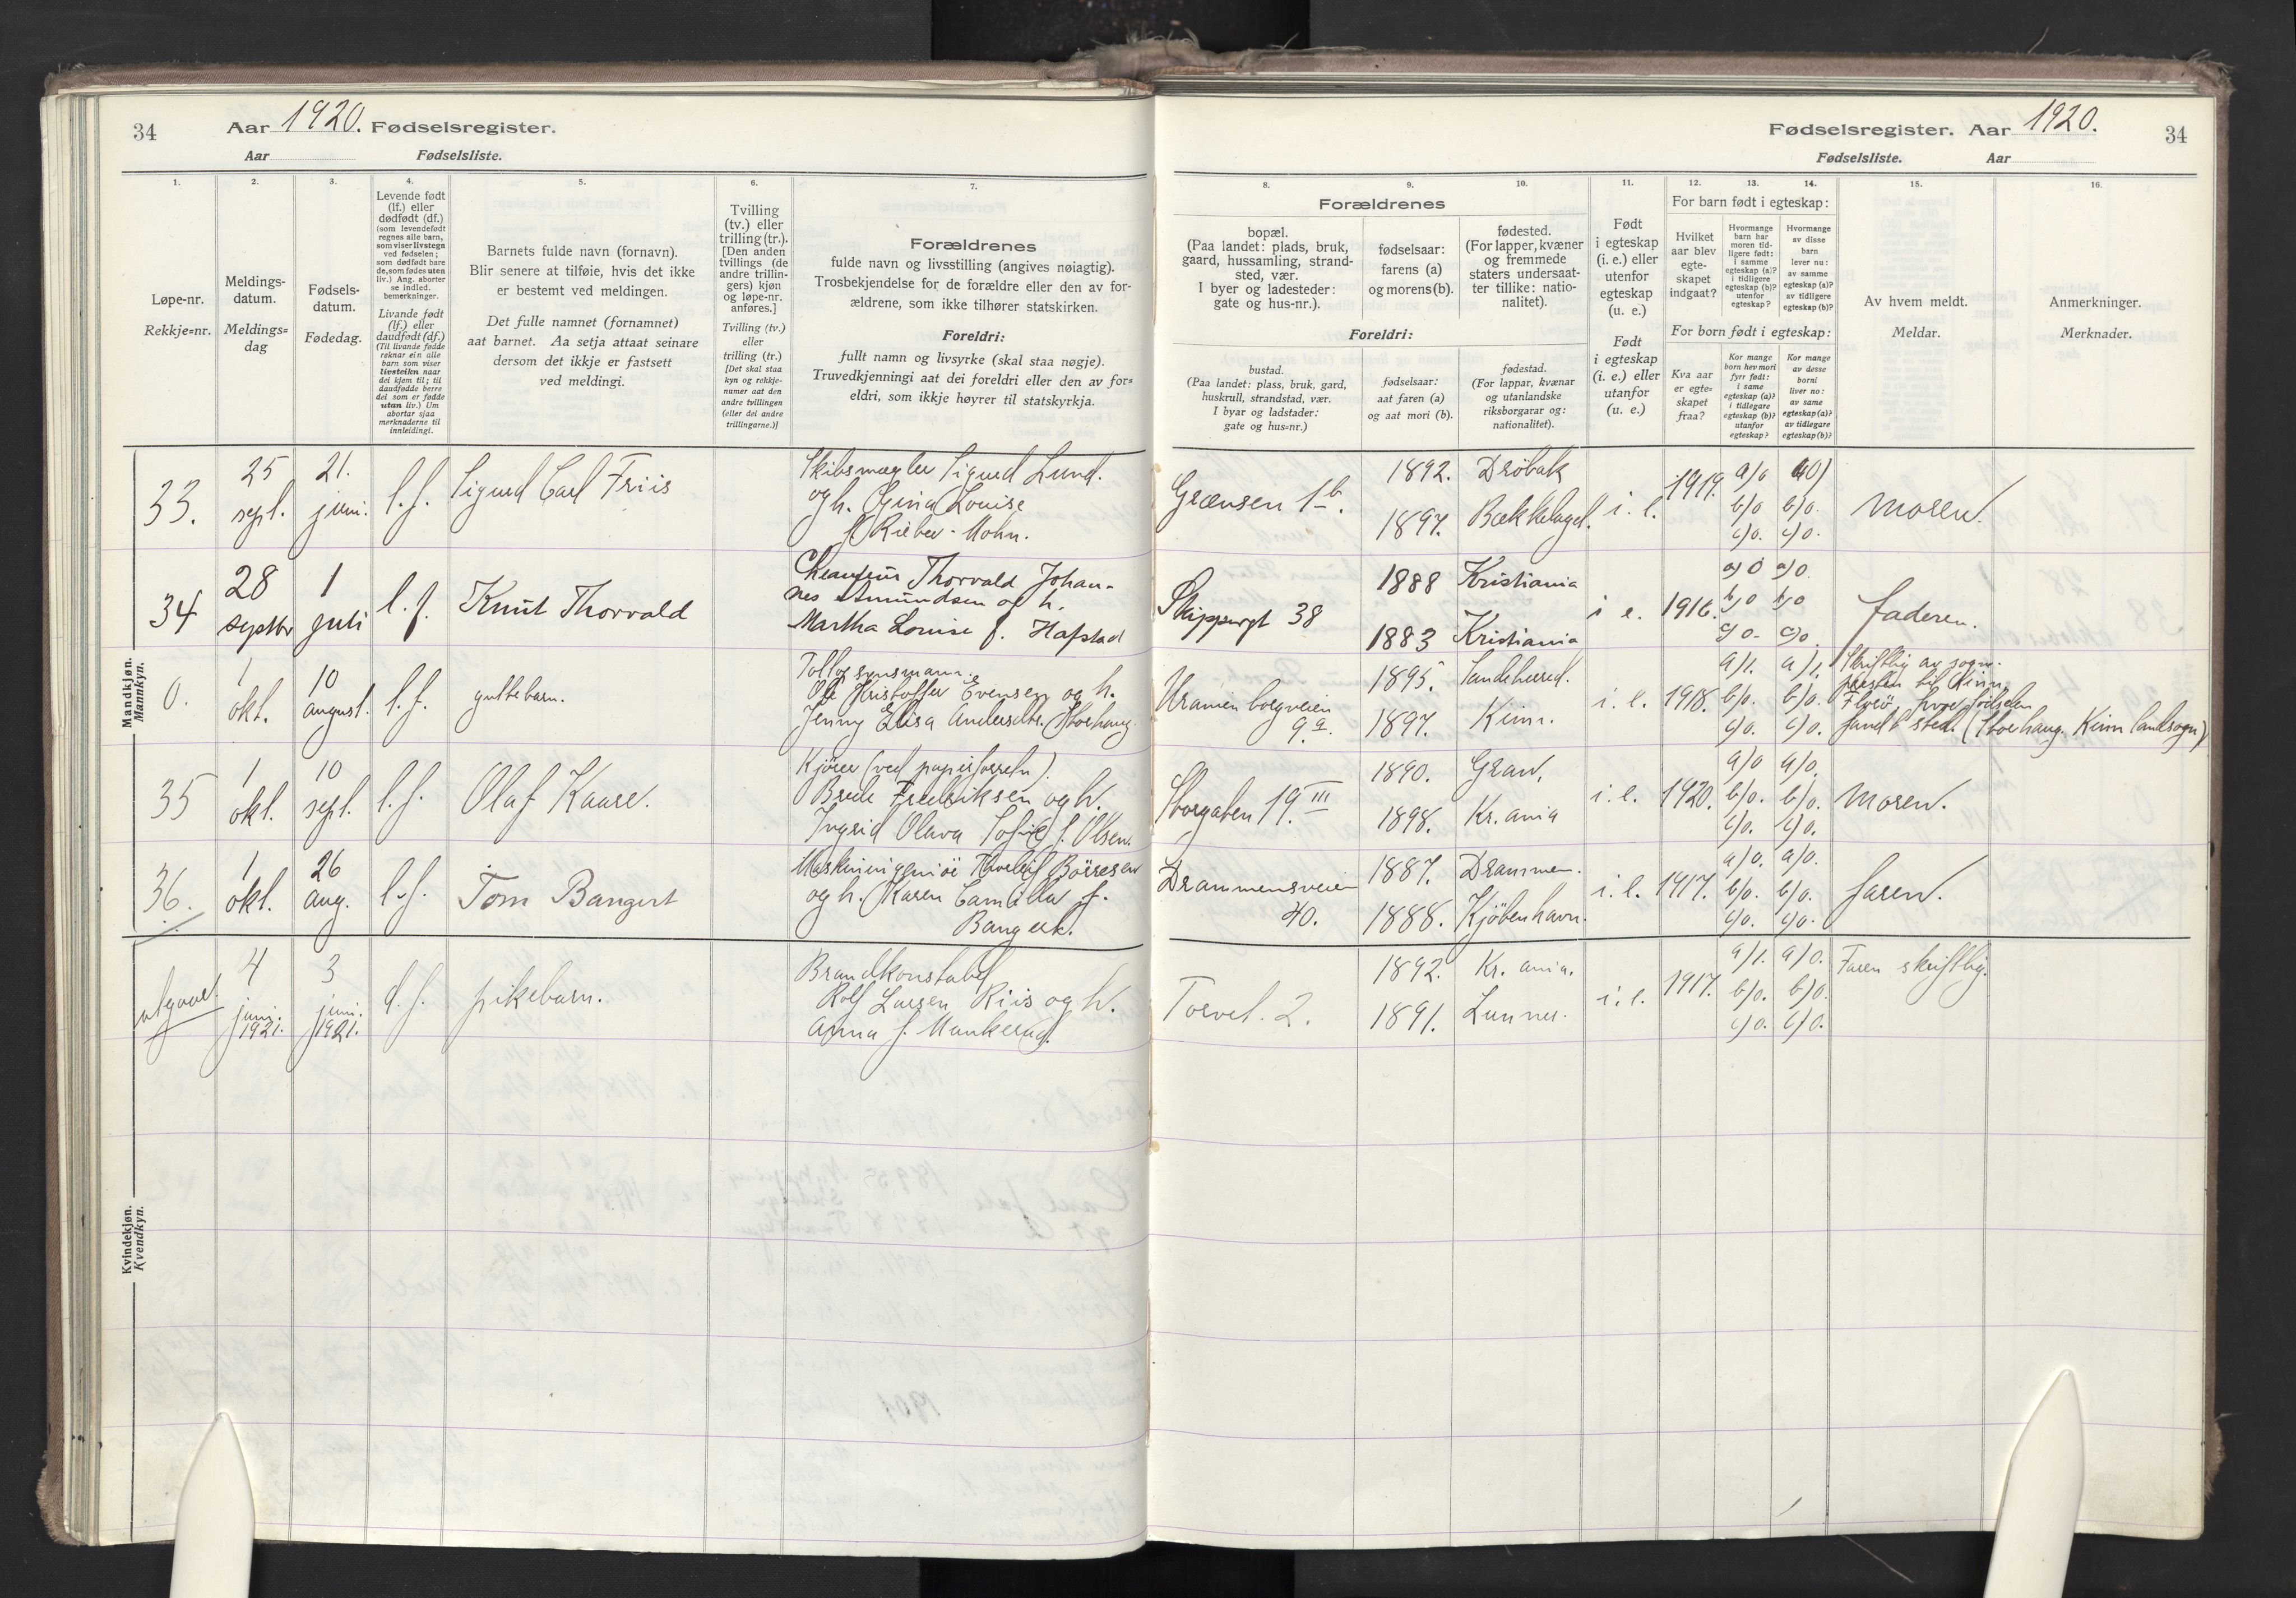 34
Aar 1920. Fødselsregister.
Aar Fødselsliste.
1.
2.
3.
4.
5.
6.
7.
Løpe-nr.
Rekkje=nr.
Meldings-
datum.
Meldings=
dag
Fødsels-
datum.
Fødedag.
Levende født
(lf.) eller
dødfødt (df.)
(som levendefødt
regnes alle barn,
som viser livstegn
ved fødselen;
som dødfødt bare
de, som fødes uten
liv.) Ang. aborter
se indled.
bemerkninger.
Livande født
(lf.) eller
daudfødt (df.)
(Til livande fødde
reknar ein alle
barn som viser
livsteikn naar
dei kjem til; til
daudfødde berre
dei som er fødde
utan liv.) Um
abortar sjaa
merknaderne til
innleidingi.
Barnets fulde navn (fornavn).
Blir senere at tilføie, hvis det ikke
er bestemt ved meldingen.
Det fulle namnet (fornamnet)
aat barnet. Aa setja attaat seinare
dersom det ikkje er fastsett
ved meldingi.
Tvilling
(tv.) eller
trilling (tr.).
[Den anden
tvillings (de
andre trillin-
gers) kjøn
og løpe-nr.
anføres.]
Tvilling (tv.)
eller
trilling (tr.)
[Det skal staa
kyn og rekkje-
numer aat den
andre tvillingen
(eller dei andre
trillingarne.)]
Forældrenes
fulde navn og livsstilling (angives nøiagtig).
Trosbekjendelse for de forældre eller den av for-
ældrene, som ikke tilhører statskirken.
Foreldri:
fullt namn og livsyrke (skal staa nøgje).
Truvedkjenningi aat dei foreldri eller den av for=
eldri, som ikkje høyrer til statskyrkja.
Mandkjøn.
Mannkyn.
33. 25 sept. 21. juni. l. f. Sigurd Carl Friis
Skibsmægler Sigurd Lund.
og h. Gina Louise
f. Rieber-Mohn.
34 28 septbr 1 juli l. f. Knut Thorvald
Chauffeur Thorvald Johan-
nes Amundsen og h.
Martha Louise f. Hafstad
0. 1 okt. 10 august. l. f. guttebarn.
Tollopsynsmann
Ole Kristoffer Evensen og h.
Jenny Elisa Andersdtr. Storhaug.
35 1 okt. 10 sept. l. f. Olaf Kaare.
Kjører (ved papirforretn).
Brede Fredriksen og h.
Ingrid Olava Sofie f. Olsen.
36. 1 okt. 26 aug. l. f. Tom Bangert
Maskiningeniør Thorleif Børresen
og h. Karen Camilla f.
Bangert.
Kvindekjøn.
Kvendkyn.
utgaar. 4 juni. 1921. 3 juni. 1921. d. f. pikebarn.
Brandkonstabel
Rolf Larsen Riis og h.
Anna f. Mankerud.
Fødselsregister. Aar 1920.
34
Fødselsliste. Aar
8.
9.
10.
11.
12.
13.
14.
15.
16.
Forældrenes
bopæl.
(Paa landet: plads, bruk,
gaard, hussamling, strand-
sted, vær.
I byer og ladesteder:
gate og hus-nr.).
fødselsaar:
farens (a)
og morens (b).
fødested.
(For lapper, kvæner
og fremmede
staters undersaat-
ter tillike: natio-
nalitet).
Foreldri:
bustad.
(Paa landet: plass, bruk, gard,
huskrull, strandstad, vær.
I byar og ladstader:
gate og hus=nr.)
fødselsaar:
aat faren (a)
og aat mori (b).
fødestad.
(For lappar, kvænar
og utanlandske
riksborgarar og:
nationalitet).
Født
i egteskap
(i. e.) eller
utenfor
egteskap
(u. e.)
Født
i egteskap
(i. e.) eller
utanfor
(u. e.)
For barn født i egteskap:
Hvilket
aar blev
egte-
skapet
indgaat?
Hvormange
barn har
moren tid-
ligere født:
i samme
egteskap (a)?
i tidligere
egteskap (b)?
utenfor
egteskap?
Hvormange
av disse
barn
lever nu:
av samme
egteskap (a)?
av tidligere
egteskap (b)?
For born født i egteskap:
Kva aar
er egte=
skapet
fraa?
Kor mange
born hev mori
fyrr født:
i same
egteskap (a)?
i tidlegare
egteskap (b)?
utanfor
egteskap?
Kor mange
av desse
borni
liver no:
av same
egteskap (a)?
av tidlegare
egteskap (b)?
Av hvem meldt.
Meldar.
Anmerkninger.
Merknader.
Grænsen 1b. 1892. Drøbak i. e. 1919. a/0 a0) moren.
1897. Bækkelaget. b/0 b/0.
c/0. c/0.
Skippergt 38 1888 Kristiania i e. 1916. a/0 a/0. faderen.
1883 Kristiania b/0 b/0
c/0. c/0
Uranienborgveien 9a. 1895. Sandeherred. i. e. 1918. a/1. a/1.
1897. Kinn. b/0. b/0.
c/0. c/0.
Skriftlig av sogne-
presten til Kinn,
Florø, hvor fødselen
fandt sted. (Storhaug. Kinn landsogn)
Storgaten 19.III 1890. Gran, i. e. 1920. a/0 a/0. moren.
1898. Kr.ania b/0. b/0.
c/0. c/0.
Drammensveien 40. 1887. Drammen. i. e. 1917. a/0. a/0. faren.
1888. Kjøbenhavn. b/0. b/0.
c/0. c/0.
Torvet. 2. 1892. Kr. ania. i. e. 1917. a/1. a/0. Faren skriftlig.
1891. Lunner. b/0. b/0.
c/0. c/0.